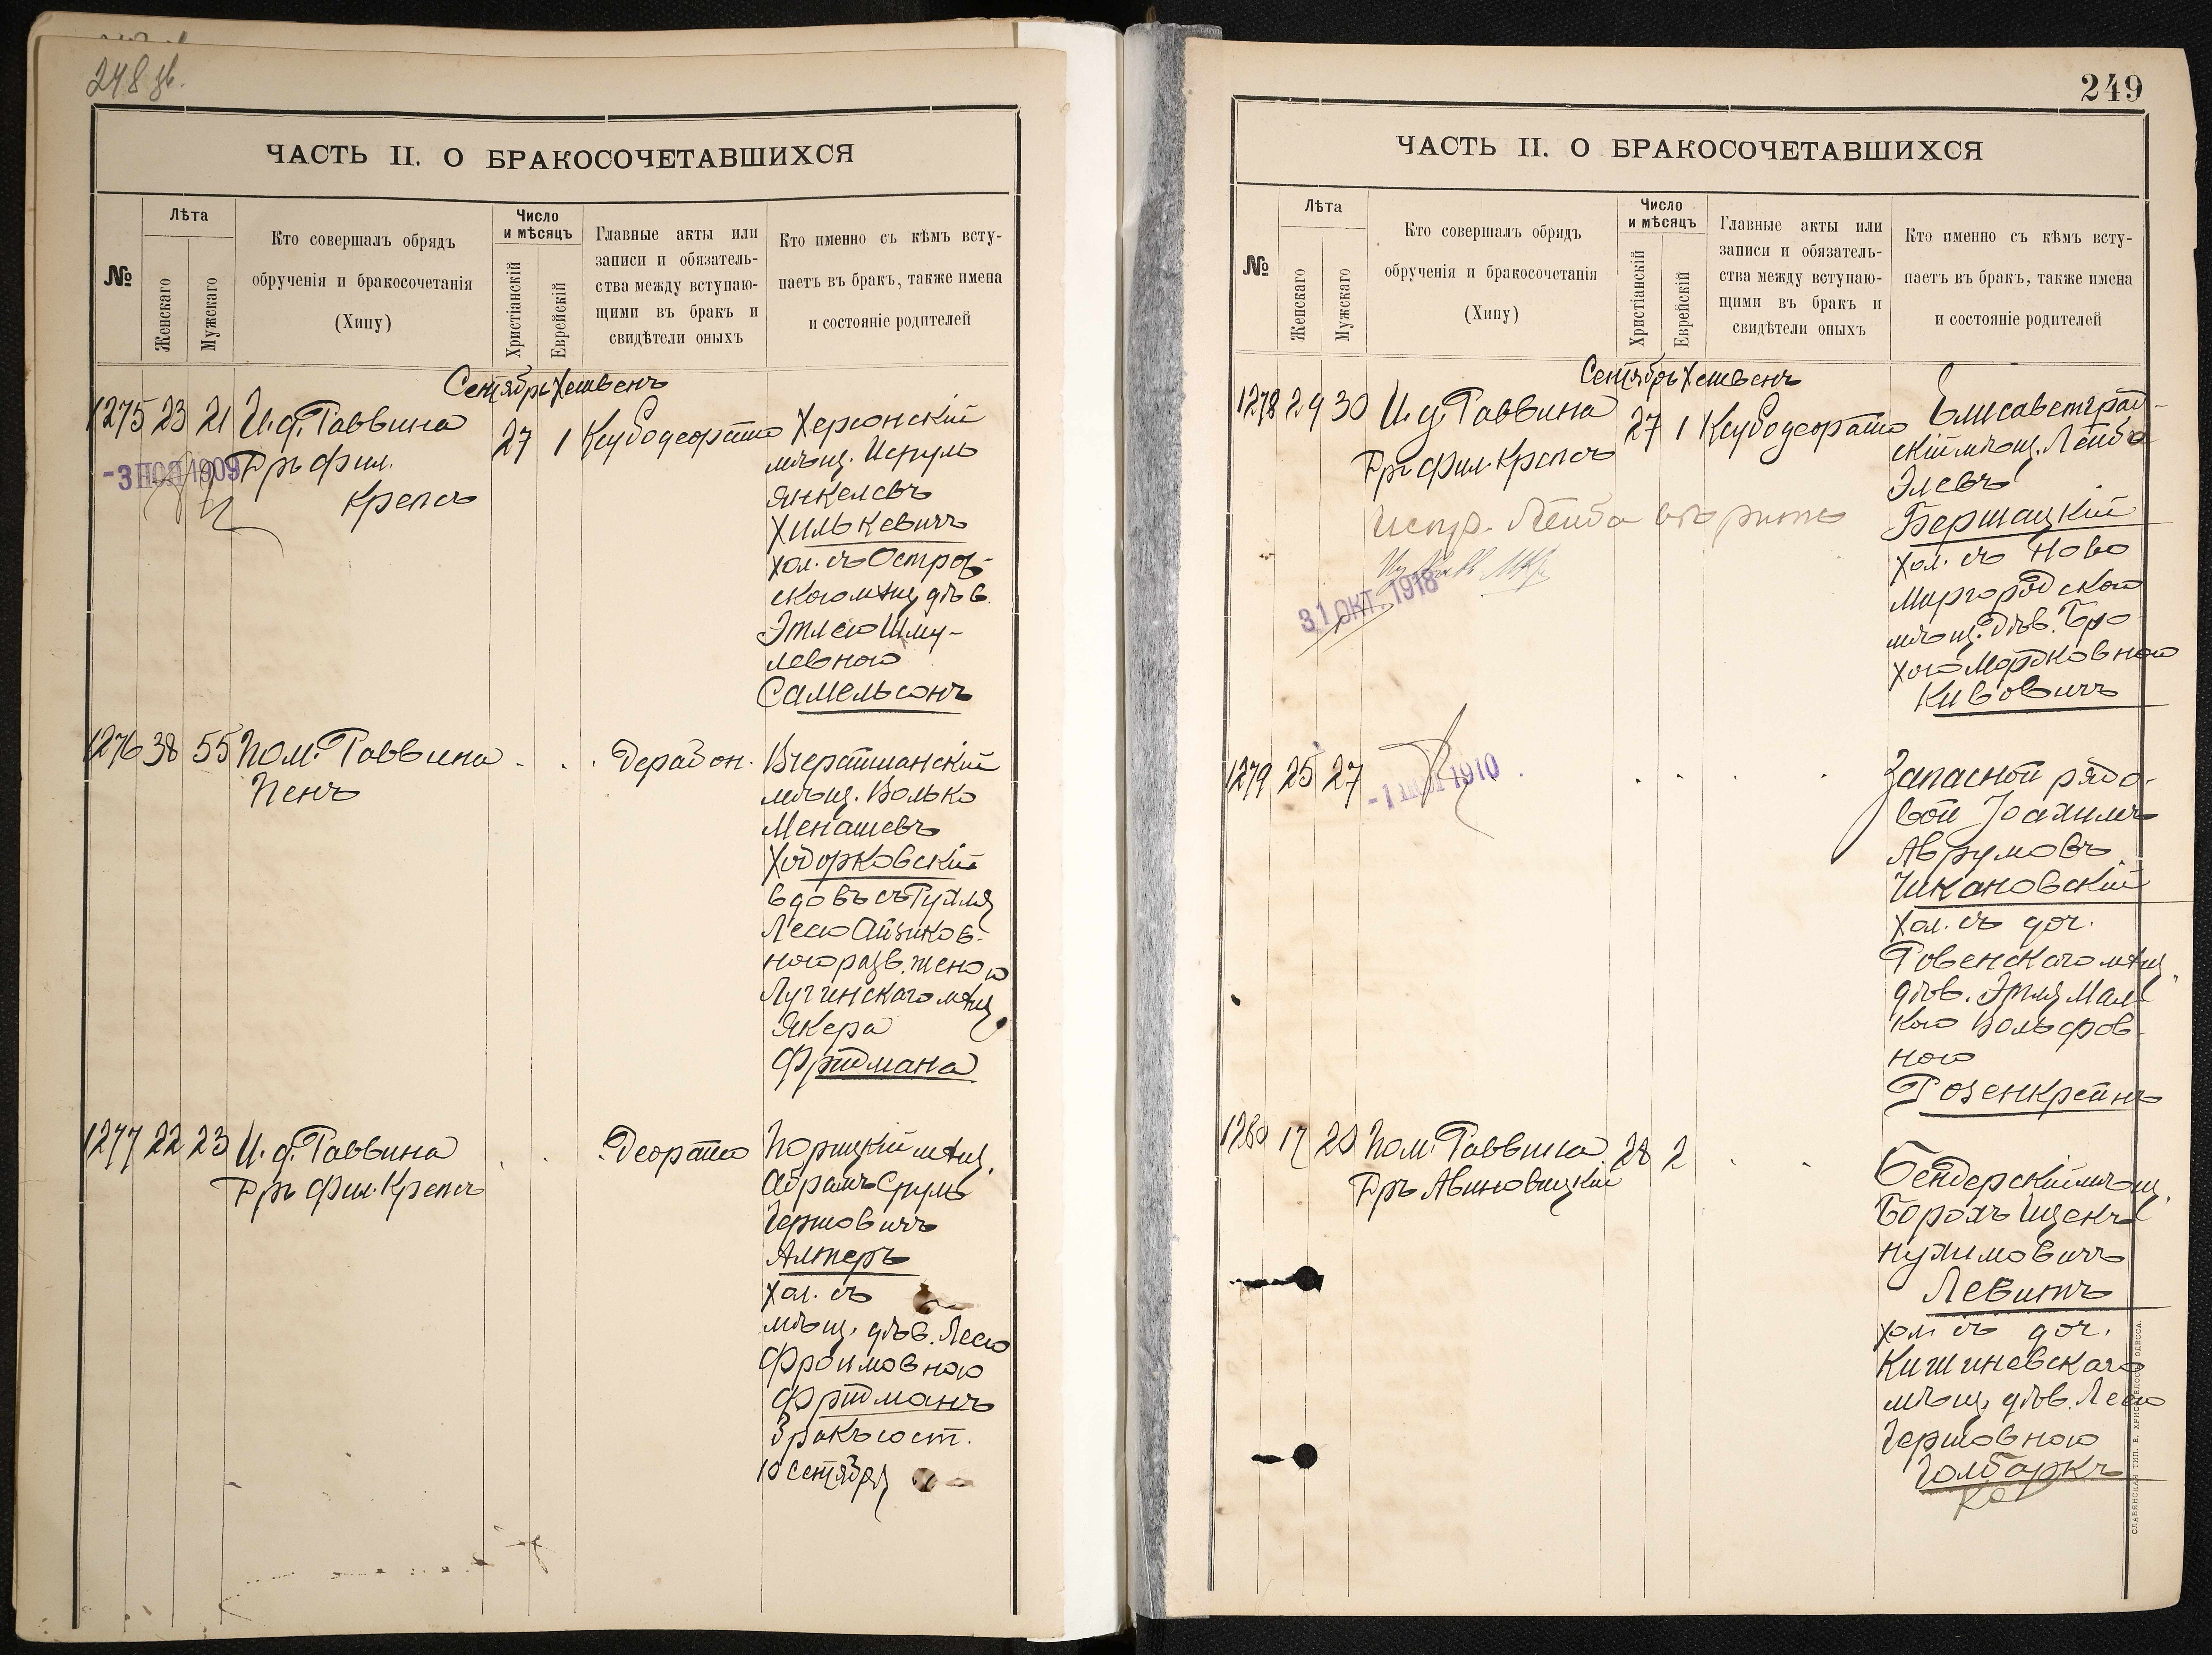 248
ЧАСТЬ II. О БРАКОСОЧЕТАВШИХСЯ
№
Лѣта
Женскаго
Мужскаго
Кто совершалъ обрядъ
обрученія и бракосочетанія
(Хипу)
Число
и мѣсяцъ
Христіанскій
Еврейскій
Главные акты или
записи и обязатель-
ства между вступаю-
щими въ бракъ и
свидѣтели оныхъ
Кто именно съ кѣмъ всту-
паетъ въ бракъ, также имена
и состояніе родителей
Сентябрь Хешвенъ
1275 23 21 И.д. Раввина 27 1 Ксубодеорайто Херсонскій
-3 НОЯ 1909
Д-ръ фил.
Крепсъ
мѣщ. Исруль
Янкелевъ
Хилькевичъ
хол. съ Острог-
скою мѣщ. дѣв.
Этлею Шму-
левною
Самельсонъ
1276 38 55 Пом. Раввина
Пенъ
Дерабон. Вчерашнанскій
мѣщ. Волько
Менашевъ
Ходорковскій
вдовъ съ Рухля
Лесю Айзиков-
ною разв. женою
Лугинскаго мѣщ.
Якера
Фридмана
1277 22 23 И.д. Раввина
Д-ръ Фил. Крепсъ
Деорайто Порицкій мѣщ.
Абрамъ Сруль
Гершовичъ
Алтеръ
хол. съ
мѣщ. дѣв. Лесю
Фроимовною
Фридманъ
Бракъ сост.
10 Сентября
249
ЧАСТЬ II. О БРАКОСОЧЕТАВШИХСЯ
№
Лѣта
Женскаго
Мужскаго
Кто совершалъ обрядъ
обрученія и бракосочетанія
(Хипу)
Число
и мѣсяцъ
Христіанскій
Еврейскій
Главные акты или
записи и обязатель-
ства между вступаю-
щими въ бракъ и
свидѣтели оныхъ
Кто именно съ кѣмъ всту-
паетъ въ бракъ, также имена
и состояніе родителей
Сентябрь Хешвенъ
1278 29 30 И.д. Раввина 27 1 Ксубодеорайто Елисаветград-
Д-ръ фил. Крепсъ
скій мѣщ. Лейба
Элевъ
Бершацкій
хол. съ Ново
Миргородскою
мѣщ. дѣв. Бро
хою Мордковною
Кивовичъ
Испр. Лейба
31 ОКТ. 1918
1279 25 27
1910
Запасной рядо-
вой Іоахимъ
Аврумовъ
Чикановскій
хол. съ доч.
Ровенскаго мѣщ.
дѣв. Этля Маль
кою Вольфов-
ною
Розенкрейнъ
1280 17 20 Пом. Раввина 28 2
Д-ръ Авиновицкій
Бендерскій мѣщ.
Борохъ Ицекъ
Нухимовичъ
Левитъ
хол. съ доч.
Кишиневскаго
мѣщ. дѣв. Лею
Гершовною
Голбаркъ
СЛАВЯНСКАЯ ТИП. Е. ХРИСОГЕЛОСЪ, ОДЕССА.